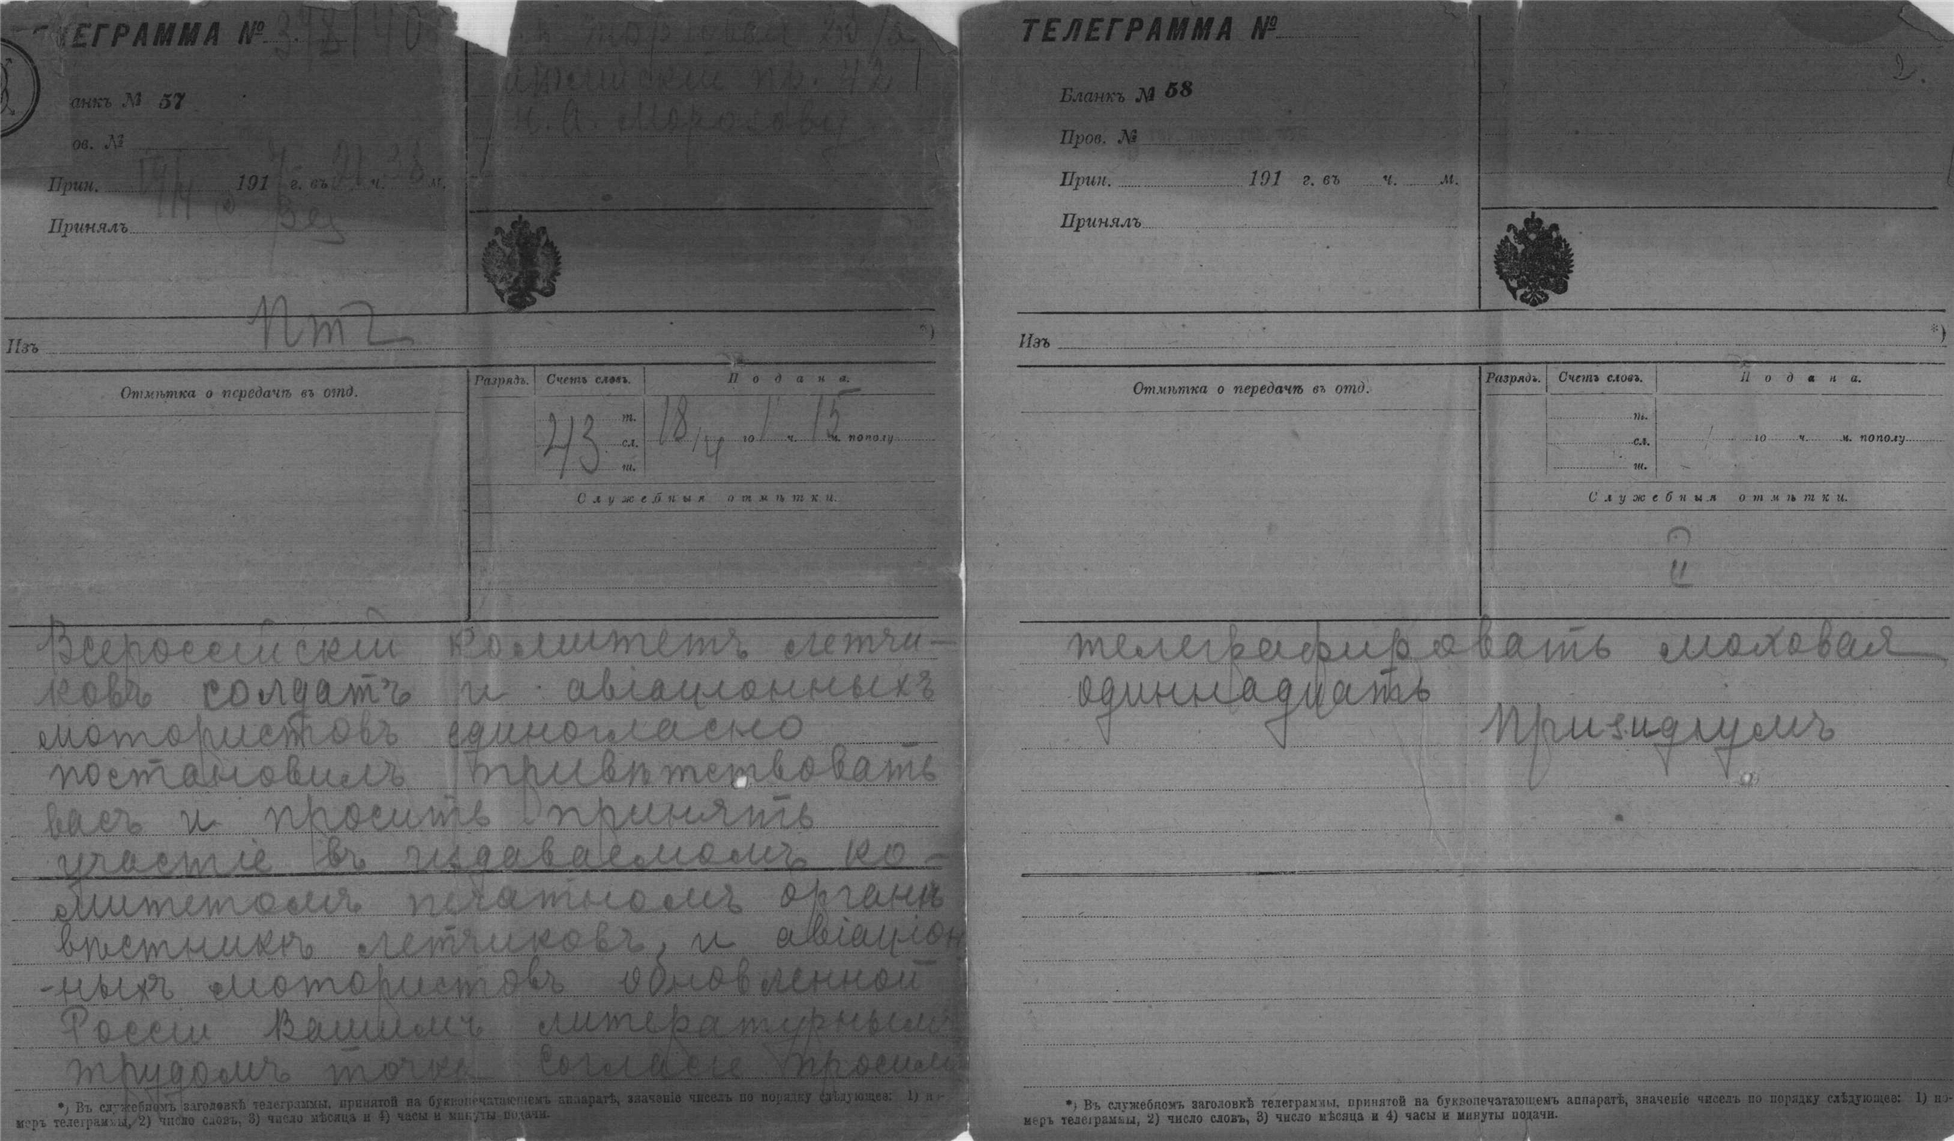 ТЕЛЕГРАММА №
анкъ № 57
ов. №
Прин. 191 г. въ ч. м.
Принялъ
пр. 42
Н. А. Морозову
Изъ Птг *)
Отмѣтка о передачѣ въ отд.
Разрядъ. Счетъ словъ. Подана.
т.
43 сл. 18/4 го 1 ч. 15 м. пополу
ш.
Служебныя отмѣтки.
Всероссійскій комитетъ летчи-
ковъ солдатъ и авіаціонныхъ
мотористовъ единогласно
постановилъ привѣтствовать
васъ и просить принять
участіе въ издаваемомъ ко-
митетомъ печатномъ органѣ
вѣстникъ летчиковъ и авіаціон
-ныхъ мотористовъ обновленной
Россіи Вашимъ литературнымъ
трудомъ точка Согласіе просимъ
*) Въ служебномъ заголовкѣ телеграммы, принятой на буквопечатающемъ аппаратѣ, значеніе чиселъ по порядку слѣдующее: 1) но-
меръ телеграммы, 2) число словъ, 3) число мѣсяца и 4) часы и минуты подачи.
ТЕЛЕГРАММА №
2.
Бланкъ № 58
Пров. №
Прин. 191 г. въ ч. м.
Принялъ
Изъ *)
Отмѣтка о передачѣ въ отд.
Разрядъ. Счетъ словъ. Подана.
т.
сл. го ч. м. пополу
ш.
Служебныя отмѣтки.
телеграфировать моховая
одиннадцать
Призидіумъ
*) Въ служебномъ заголовкѣ телеграммы, принятой на буквопечатающемъ аппаратѣ, значеніе чиселъ по порядку слѣдующее: 1) но-
меръ телеграммы, 2) число словъ, 3) число мѣсяца и 4) часы и минуты подачи.